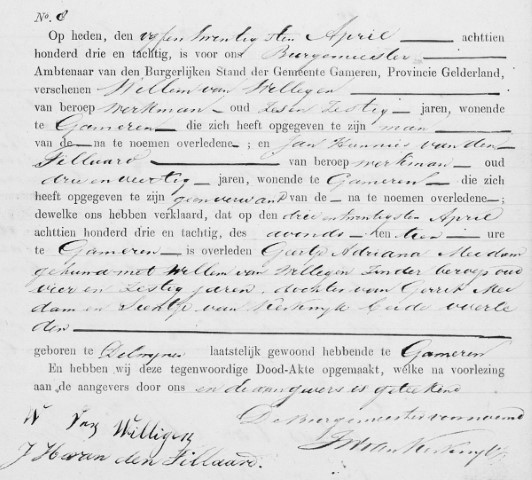 No. 8
Op heden, den vyfentwintigsten April achttien
honderd drie en tachtig, is voor ons Burgemeester
Ambtenaar van den Burgerlijken Stand der Gemeente Gameren, Provincie Gelderland,
verschenen Willem van Willegen
van beroep werkman oud zesenzestig jaren, wonende
te Gameren die zich heeft opgegeven te zijn man
van de na te noemen overledene; en Jan Hannis van den
Fillaard van beroep werkman oud
drie en veertig jaren, wonende te Gameren die zich
heeft opgegeven te zijn geen verwand van de na te noemen overledene;
dewelke ons hebben verklaard, dat op den drie en twintigsten April
achttien honderd drie en tachtig, des avonds ten tien ure
te Gameren is overleden Adriana Mee dam
gehuwd met Willem van Willegen zonder beroep oud
vier en zestig jaren, dochter van Gerrit Mee
dam en van Kerkwyk beide overle
den
geboren te laatstelijk gewoond hebbende te Gameren
En hebben wij deze tegenwoordige Dood-Akte opgemaakt, welke na voorlezing
aan de aangevers door ons en de aangevers is geteekend
De Burgemeester voornoemd
W van Willigen
J H van den Fillaard.